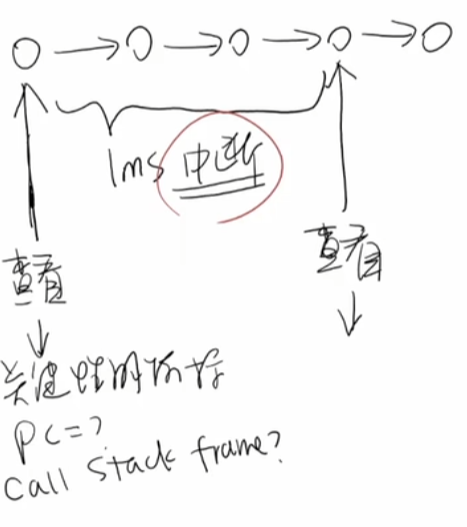 1ms 中断
查看
查看
关键性的
PC=?
Call stack frame?